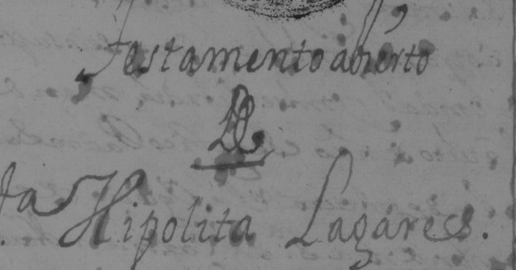 Testamento abierto
De
Hipolita Lagares.